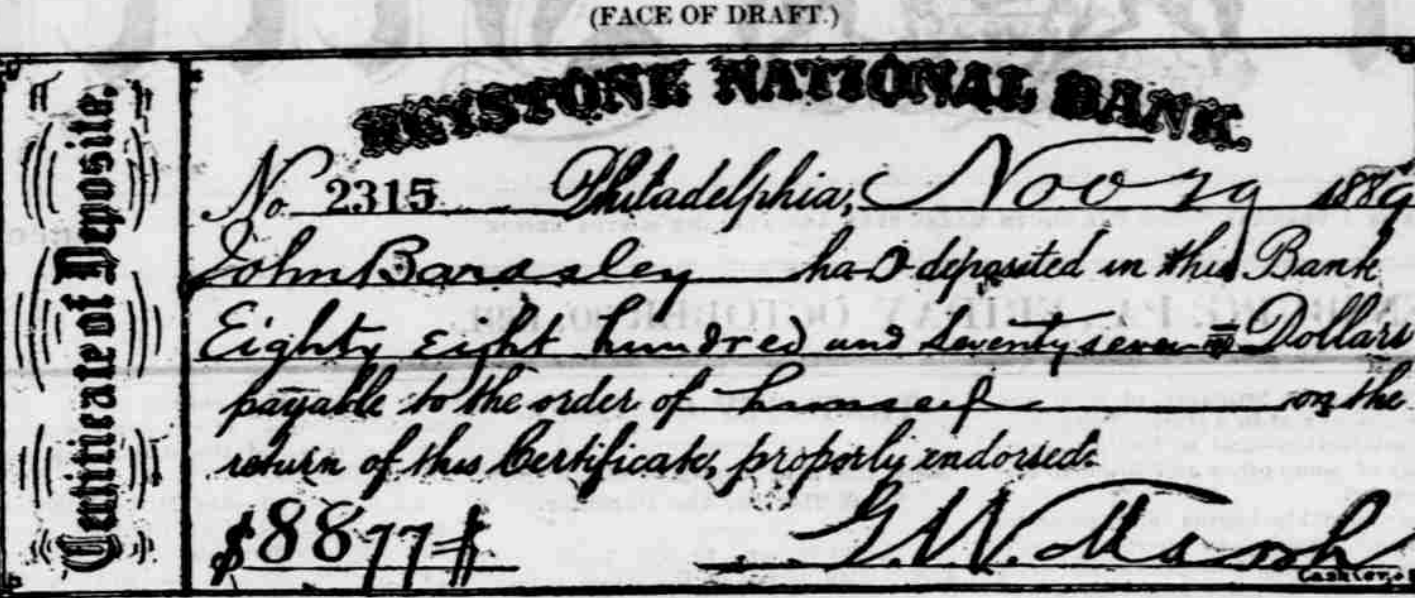 (FACE OF DRAFT.)
Certificate of Deposite.
KEYSTONE NATIONAL BANK.
No. 2315 Philadelphia, Nov 29 1889
John Bardsley has deposited in this Bank
Eighty eight hundred and seventy seven Dollars
payable to the order of himself on the
return of this Certificate, properly endorsed.
$8877
G. W. Marsh
Cashier.